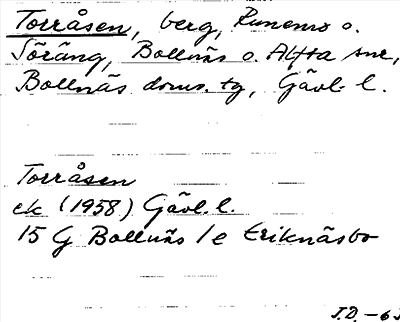 Torråsen, berg, Runemo o.
Söräng, Bollnäs o. Alfta snr,
Bollnäs doms. tg, Gävl. l.
Torråsen
ek (1958) Gävl. l.
15 G Bollnäs 1e Eriknäsbo
J.D. -63